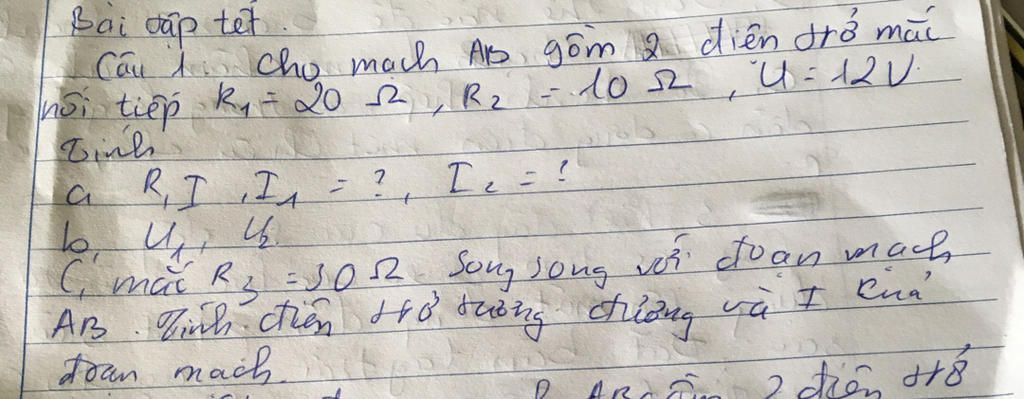 Bài tập tết.
Câu 1: Cho mạch AB gồm 2 điện trở mắc
nối tiếp R₁ = 20 Ω, R₂ = 10 Ω, U = 12V.
Tính
a R, I, I₁ = ?, I₂ = ?
b, U₁, U₂
C, mắc R₃ = 30 Ω song song với đoạn mạch
AB. Tính điện trở tương đương và I của
đoạn mạch.
2 điện trở